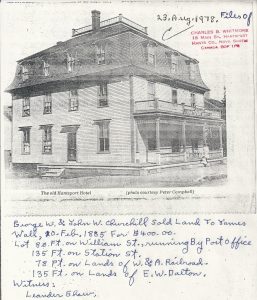 23, Aug. 1978. Files of
CHARLES B. WHITMORE
15 MAIN ST., HANTSPORT
HANTS CO., NOVA SCOTIA
CANADA B0P 1P0
The old Hantsport Hotel
(photo courtesy Peter Campbell)
George W. & John W. Churchill Sold Land To James
Wall, 20-Feb. 1885 For $400.00.
Lot 80 Ft. on William St., running By Post Office
135 Ft. on Station St.
78 Ft. on Lands of W. & A. Railroad.
135 Ft. on Lands of E. W. Dalton.
Witness:
Leander Shaw,